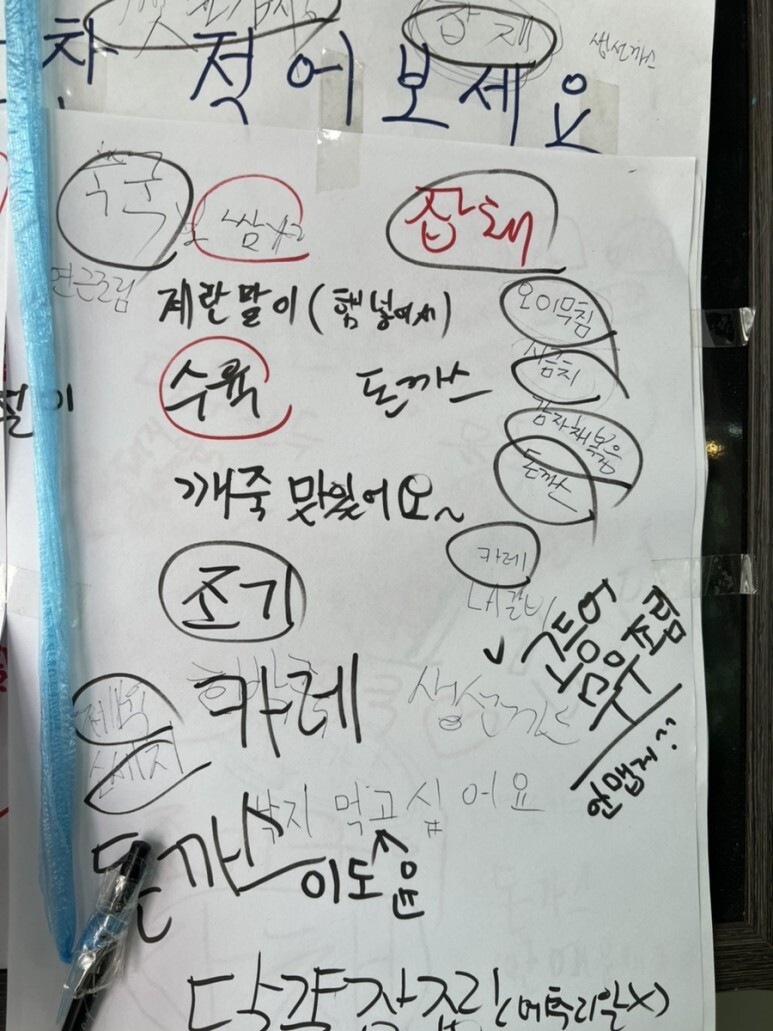 잡채
생선까스
차 적어보세요
쑥국
쌈X2
잡채
연근조림
계란말이 (햄넣어서)
오이무침
시금치
수육
돈까스
감자채볶음
돈까스
깨죽 맛있어요~
카레
조기
LA갈비
고등어무조림
안맵게^^
제육
카레
생선까스
소세지
낙지 먹고 십어요
돈까스
이도윤
닭걀장조림 (메추리알X)